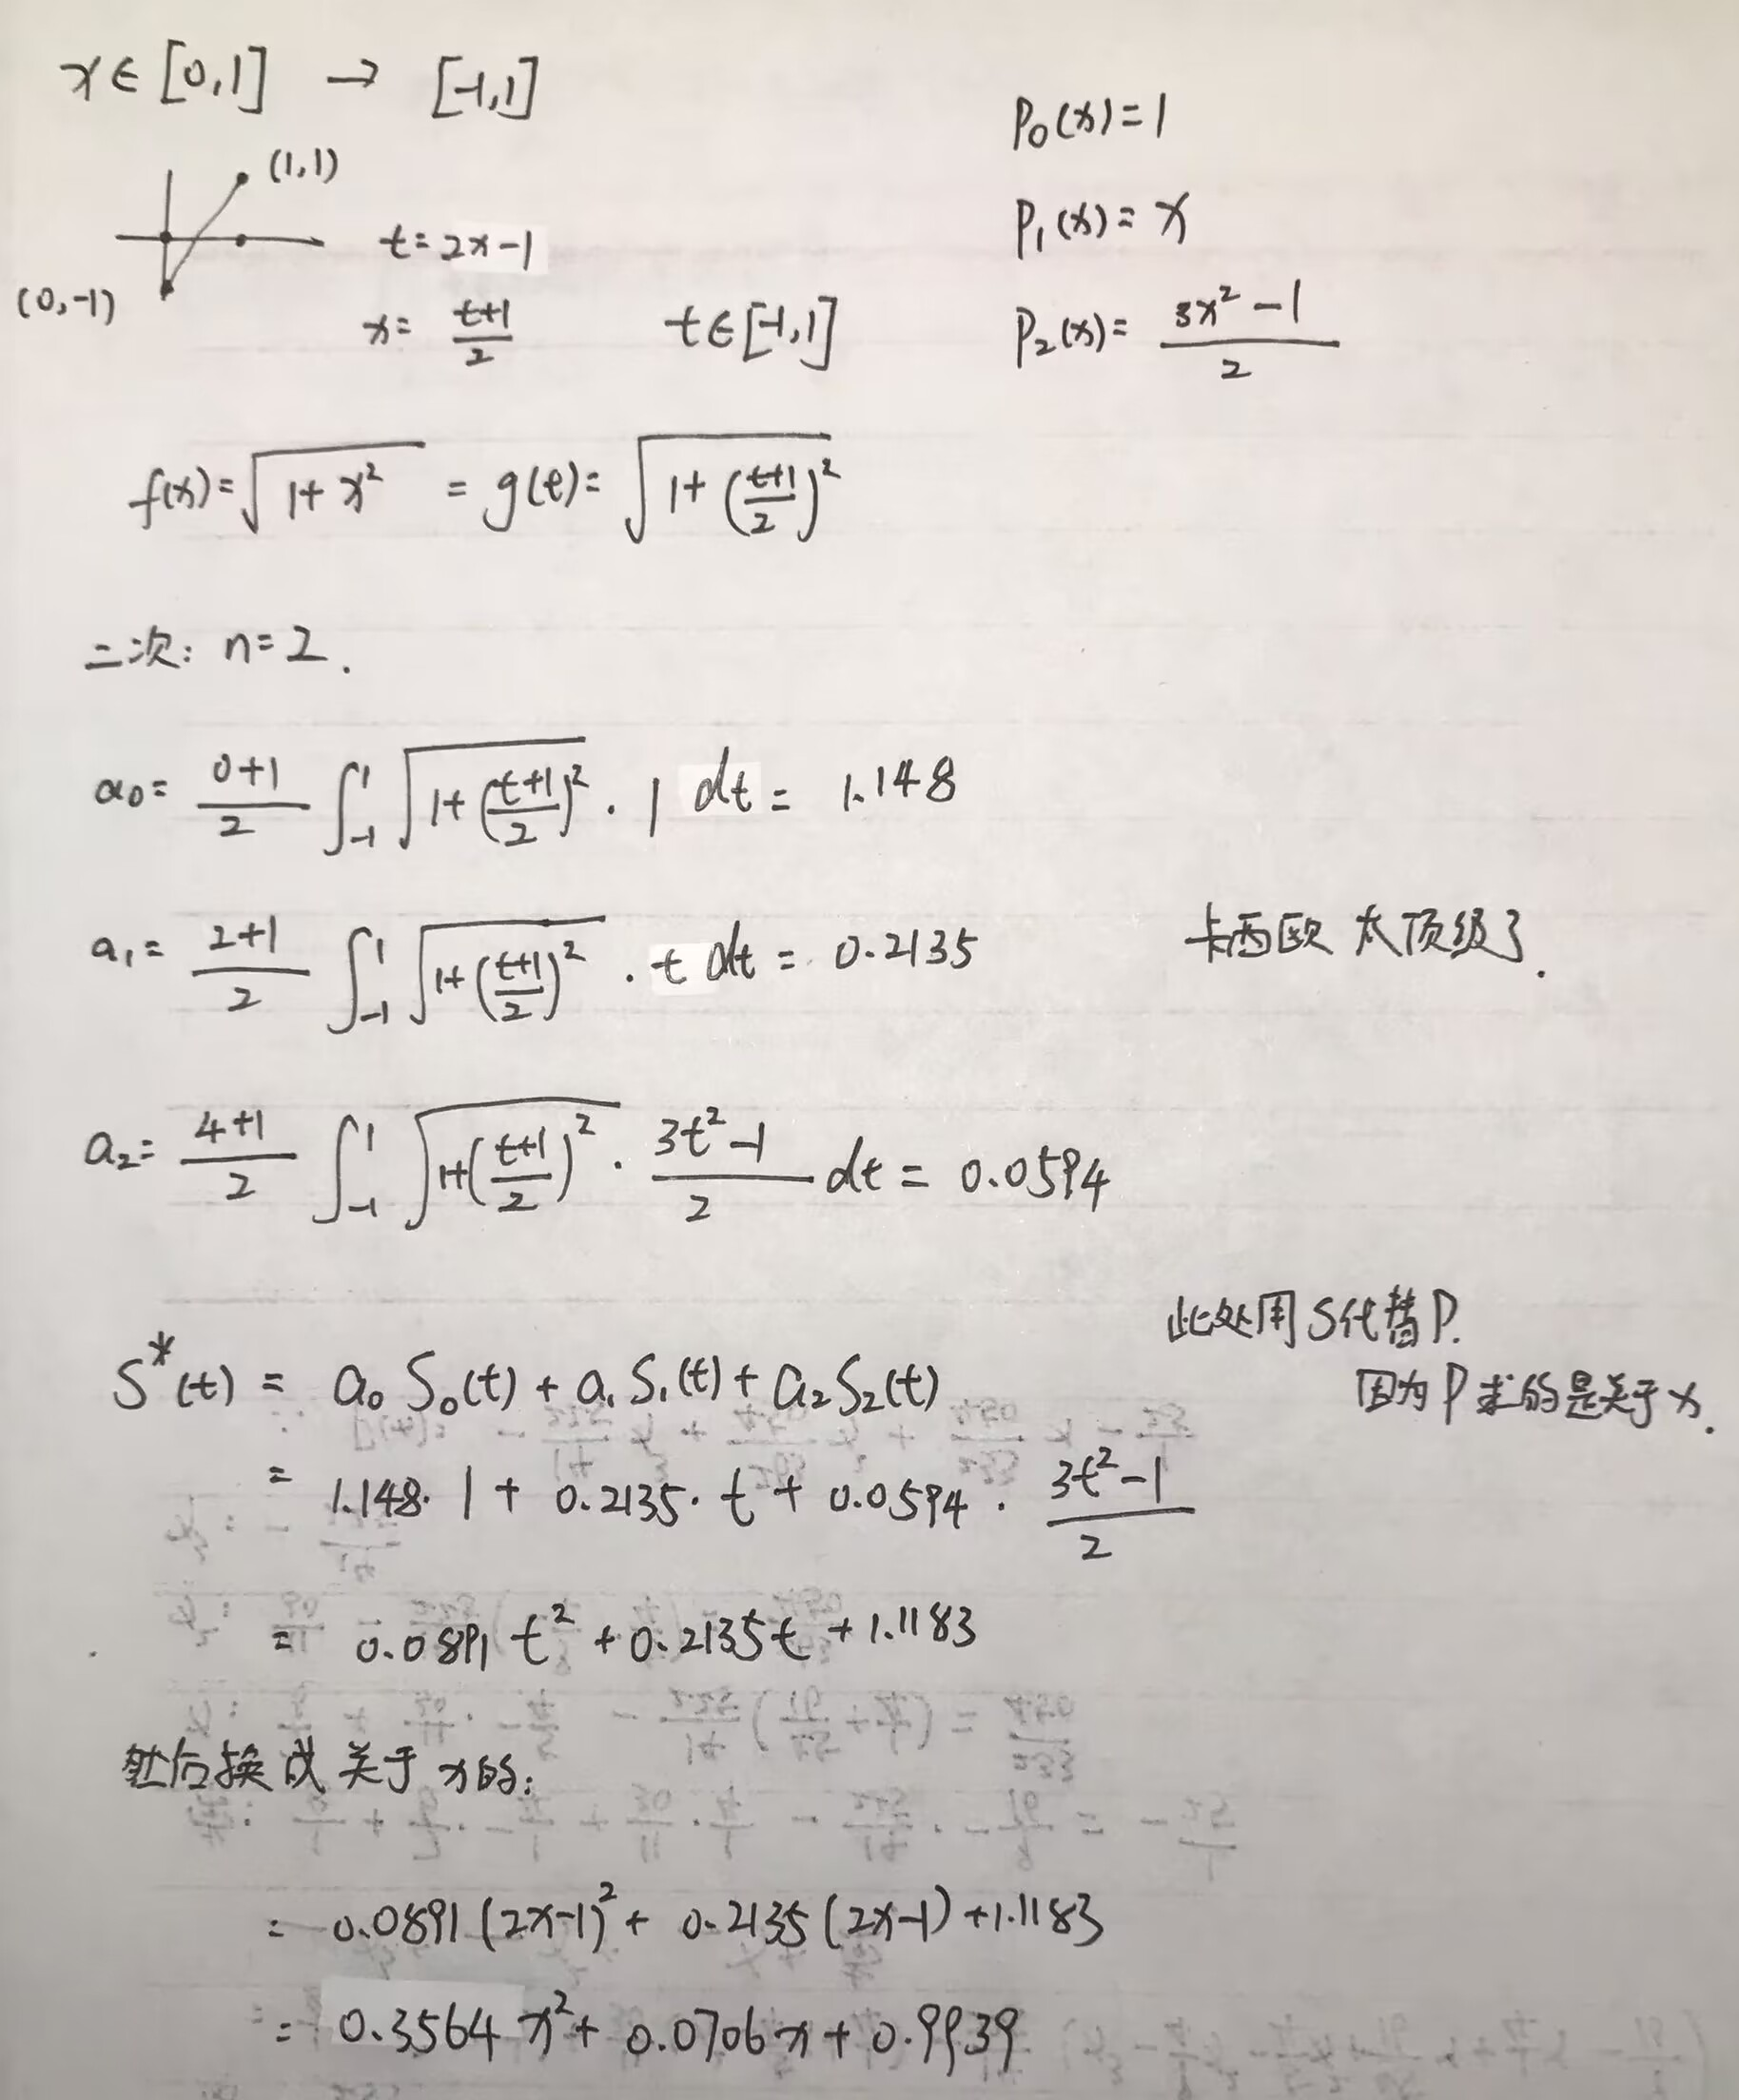 x∈[0,1] → [-1,1]
P₀(x)=1
(1,1)
P₁(x)=x
t=2x-1
(0,-1)
x=(t+1)/2 t∈[-1,1]
P₂(x)=(3x²-1)/2
f(x)=√(1+x²) = g(t)=√(1+((t+1)/2)²)
二次: n=2.
a₀= (0+1)/2 ∫₋₁¹ √(1+((t+1)/2)²) · 1 dt = 1.148
a₁= (2+1)/2 ∫₋₁¹ √(1+((t+1)/2)²) · t dt = 0.2135
卡西欧 太顶级了.
a₂= (4+1)/2 ∫₋₁¹ √(1+((t+1)/2)²) · (3t²-1)/2 dt = 0.0594
此处用S代替P.
因为P求的是关于x.
S*(t) = a₀S₀(t)+a₁S₁(t)+a₂S₂(t)
= 1.148·1+0.2135·t+0.0594·(3t²-1)/2
= 0.0891t²+0.2135t+1.1183
然后换成关于x的:
= 0.0891(2x-1)²+0.2135(2x-1)+1.1183
= 0.3564x²+0.0706x+0.9939